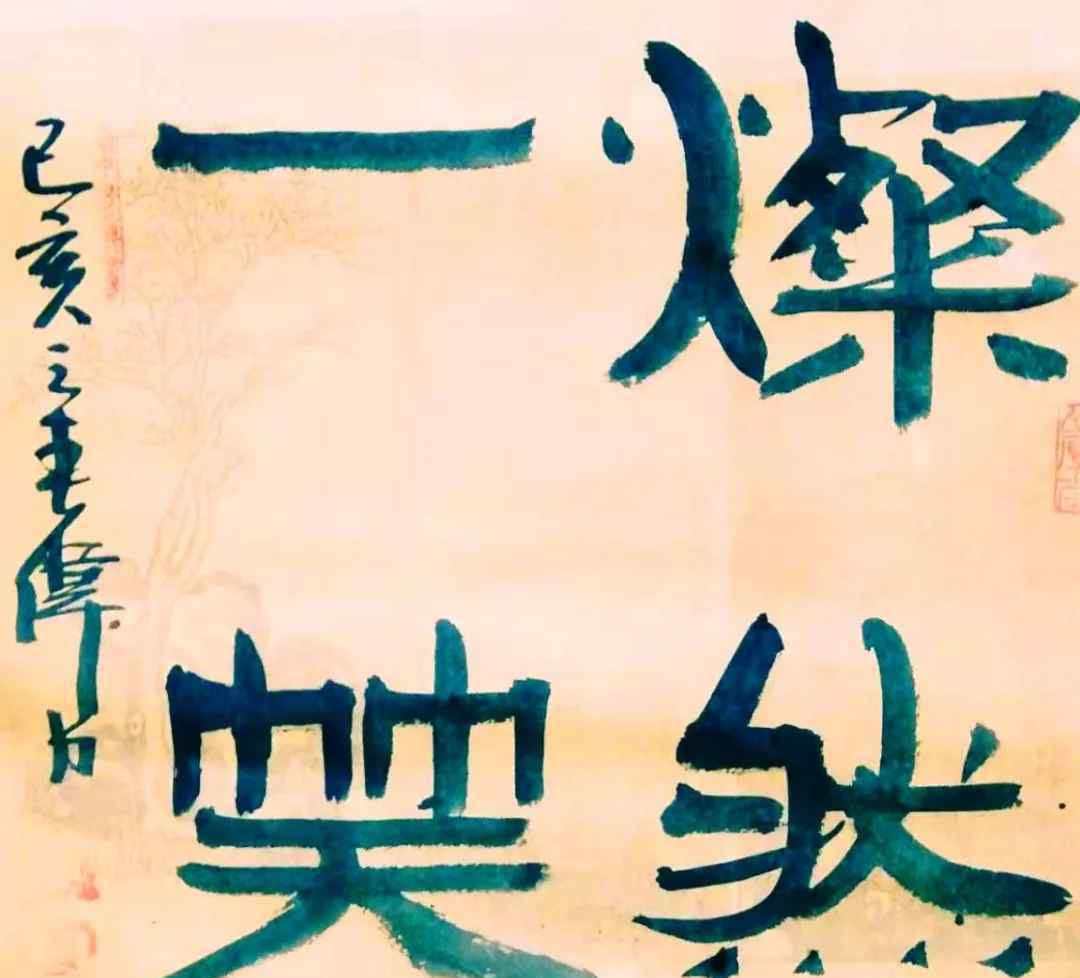 燦然
一笑
己亥之春